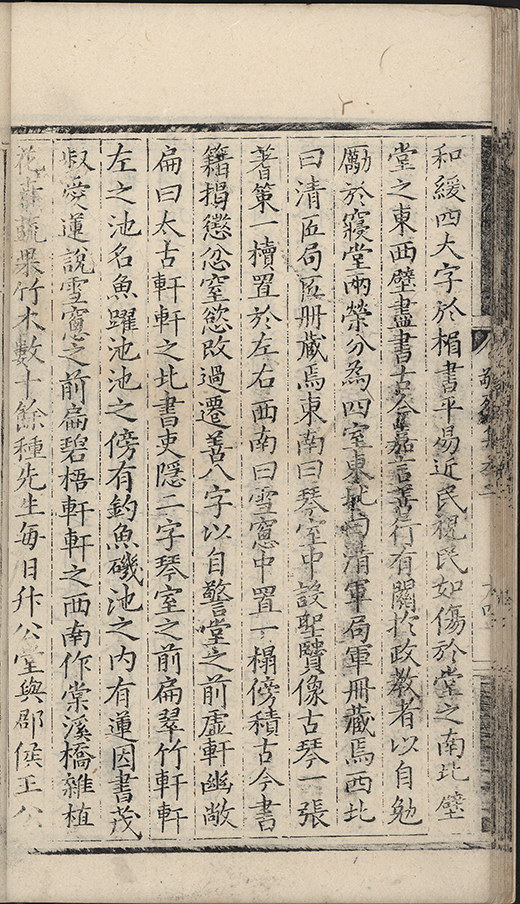 和緩四大字於楣書平易近民視民如傷於堂之南北壁
堂之東西壁盡書古今嘉言善行有關於政教者以自勉
勵於寢堂兩榮分為四室東北曰清軍局軍冊藏焉西北
曰清匠局匠冊藏焉東南曰琴室中設聖賢像古琴一張
蓍策一櫝置於左右西南曰雪窻中置一榻傍積古今書
籍揭懲忿窒慾改過遷善八字以自警堂之前虛軒幽敞
扁曰太古軒軒之北書吏隱二字琴室之前扁翠竹軒軒
左之池名魚躍池池之傍有釣魚磯池之內有蓮因書茂
叔愛蓮說雪窻之前扁碧梧軒軒之西南作棠溪橋雜植
花卉蔬果竹木數十餘種先生每日升公堂與郡侯王公